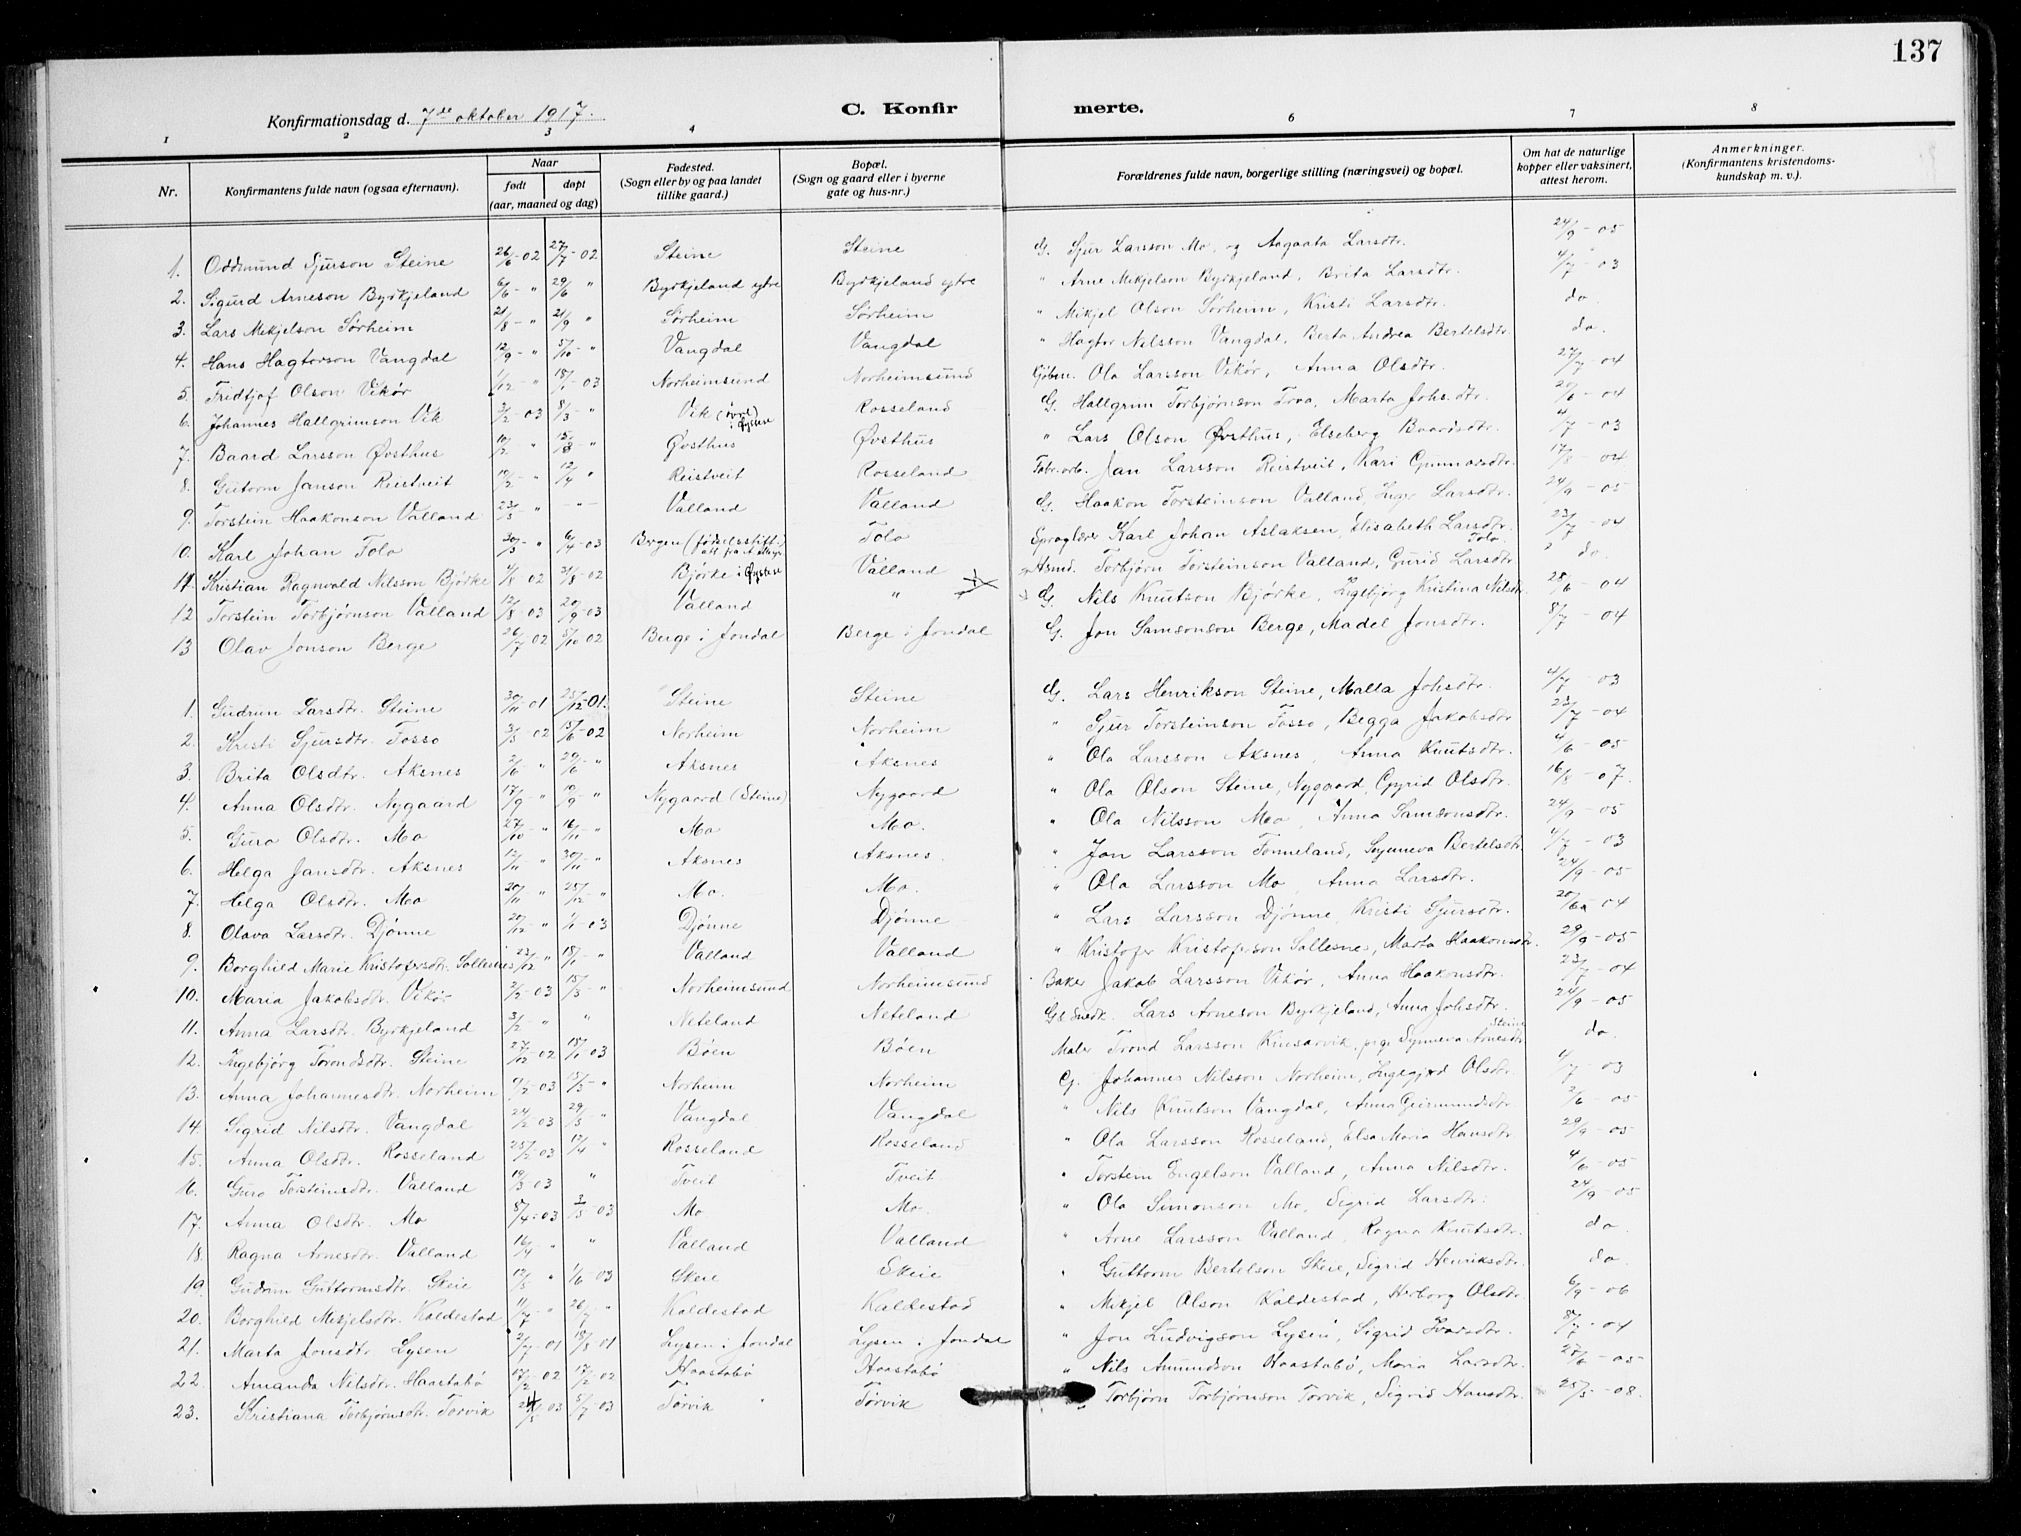 137
Konfirmationsdag d. 7de oktober 1917.
C. Konfirmerte.
1 2 3 4 6 7 8
Nr. Konfirmantens fulde navn (ogsaa efternavn). Naar født døpt (aar, maaned og dag) Fødested. (Sogn eller by og paa landet tillike gaard.) Bopæl. (Sogn og gaard eller i byerne gate og hus-nr.) Forældrenes fulde navn, borgerlige stilling (næringsvei) og bopæl. Om hat de naturlige kopper eller vaksinert, attest herom. Anmerkninger. (Konfirmantens kristendoms-kundskap m. v.).
1. Oddmund Sjurson Steine 26/6-02 27/7-02 Steine Steine G. Sjur Larsson Mo, og Aagaata Larsdtr. 24/9-05
2. Sigurd Arneson Byrkjeland 6/6-" 29/6 " Byrkjeland ytre Byrkjeland ytre " Arne Mikjelson Byrkjeland, Brita Larsdtr. 4/7-03
3. Lars Mikjelson Sørheim 21/8-" 21/9 " Sørheim Sørheim " Mikjel Olson Sørheim, Kristi Larsdtr. do.
4. Hans Hagtorson Vangdal 12/9-" 5/10-" Vangdal Vangdal " Hagtor Nilsson Vangdal, Berta Andrea Bertelsdtr. do.
5. Fridtjof Olson Vikør 1/12-" 18/1-03 Norheimsund Norheimsund Kjøbm. Ola Larsson Vikør, Anna Olsdtr. 27/7-04
6. Johannes Hallgrimson Vik 3/2-03 8/3-" Vik (øvre) i Øystese Rosseland G. Hallgrim Torbjørnson Troa, Marta Johs.dtr. 20/6-04
7. Baard Larsson Øvsthus 10/2-" 15/3-" Øvsthus Øvsthus " Lars Olson Øvsthus, Elseberg Baardsdtr. 4/7-03
8. Guttorm Janson Reistveit 10/2-" 12/4 " Reistveit Rosseland Fabr.arb. Jan Larsson Reistveit, Kari Gunnarsdtr. 17/8-04
9. Torstein Haakonson Valland 23/3 " -"- Valland Valland G. Haakon Torsteinson Valland, Inger Larsdtr. 24/9-05
10. Karl Johan Tolo 20/3-" 6/4-03 Bergen (fødselsstift.) Tolo Karl Johan Aslaksen, Elisabeth Larsdtr. Tolo 23/7-04
11. Kristian Ragnvald Nilsson Bjørke 1/8-02 31/8-02 Bjørke i Øystese Valland Torbjørn Torsteinson Valland, Gurid Larsdtr. do.
12 Torstein Torbjørnson Valland 12/8-03 20/9-03 Valland " G. Nils Knutson Bjørke, Ingebjørg Kristina Nilsdtr. 28/6-04
13 Olav Jonson Berge 26/7 02 5/10 02 Berge i Jondal Berge i Jondal G. Jon Samsonson Berge, Madel Jonsdtr. 8/7-04
1. Gudrun Larsdtr. Steine 30/11 01 25/12-01. Steine Steine G. Lars Henrikson Steine, Malla Johsdtr. 4/7-03
2. Kristi Sjursdtr. Fosso 3/5 02 15/6-02 Norheim Norheim " Sjur Torsteinson Fosso, Begga Jakobsdtr 23/7-04
3. Brita Olsdtr. Aksnes 2/6 " 29/6-" Aksnes Aksnes " Ola Larsson Aksnes, Anna Knutsdtr. 4/6-05
4. Anna Olsdtr. Nygaard 17/9-" 10/9-" Nygaard (Steine) Nygaard " Ola Olson Steine, Nygaard, Gyrid Olsdtr. 16/8-07.
5. Guro Olsdtr. Mo 27/10-" 16/11-" Mo Mo. " Ola Nilsson Mo, Anna Samsonsdtr. 24/9-05
6. Helga Jansdtr. Aksnes 12/11 " 30/11-" Aksnes Aksnes. " Jon Larsson Tonneland, Synneva Bertelsdtr. 4/7-03
7. Helga Olsdtr. Mo 20/11 " 25/12-" Mo. Mo. " Ola Larsson Mo, Anna Larsdtr. 24/9-05
8. Olava Larsdtr. Djønne 20/12-" 1/1-03 Djønne Djønne " Lars Larsson Djønne, Kristi Sjursdtr. 20/6-04
9. Borghild Marie Kristofersdtr. Sollesnes 23/12 " 18/1-" Valland Valland " Kristofer Kristoferson Sollesnes, Marta Haakonsdtr. 29/9-05
10. Maria Jakobsdtr. Vikør 2/2-03 15/3-" Norheimsund Norheimsund Baker Jakob Larsson Vikør, Anna Haakonsdtr. 23/7-04
11. Anna Larsdtr. Byrkjeland 3/2-" " Neteland Neteland G. & Snedk. Lars Arneson Byrkjeland, Anna Johsdtr. 24/9-05
12. Ingebjørg Trondsdtr. Steine 27/12-02 18/1-03 Bøen Bøen Maler Trond Larsson Kinsarvik, p.g. Synneva Arnesdtr Steine do
13. Anna Johannesdtr. Norheim 9/2-03 15/3-" Norheim Norheim G. Johannes Nilsson Norheim, Ingegjerd Olsdtr. 4/7-03
14. Sigrid Nilsdtr. Vangdal 24/2 03 29/3-" Vangdal Vangdal " Nils Knutson Vangdal, Anna Geirmundsdtr. 3/6-05
15. Anna Olsdtr. Rosseland 25/2-03 12/4 " Rosseland Rosseland " Ola Larsson Rosseland, Elsa Maria Hansdtr. 29/9-05
16. Guro Torsteinsdtr. Valland 19/3 03 " Tveit Tveit " Torstein Engelson Valland, Anna Nilsdtr. 4/6-05
17. Anna Olsdtr. Mo 8/4-03 3/5-03 Mo Mo. " Ola Simonson Mo, Sigrid Larsdtr. 24/9-05
18. Ragna Arnesdtr. Valland 16/4 " " Valland Valland " Arne Larsson Valland, Ragna Knutsdtr. do.
19. Gudrun Guttormsdtr. Skeie 12/5 " 1/6-03 Skeie Skeie " Guttorm Bertelson Skeie, Sigrid Henriksdtr. do.
20. Borghild Mikjelsdtr. Kaldestad 11/7-" 26/7-" Kaldestad Kaldestad " Mikjel Olson Kaldestad, Herborg Olsdtr. 6/9-06
21. Marta Jonsdtr. Lysen 2/7-01 18/8 01 Lysen i Jondal Lysen i Jondal " Jon Ludvigson Lysen, Sigrid Ivarsdtr. 8/7-04
22. Amanda Nilsdtr. Haastabø 17/2-02 17/2-02 Haastabø Haastabø " Nils Amundson Haastabø, Maria Larsdtr. 27/6-05
23. Kristiana Torbjørnsdtr. Torvik 24/5 03 5/7-03 Tørvik Tørvik " Torbjørn Torbjørnson Torvik, Sigrid Hansdtr. 25/5-08.